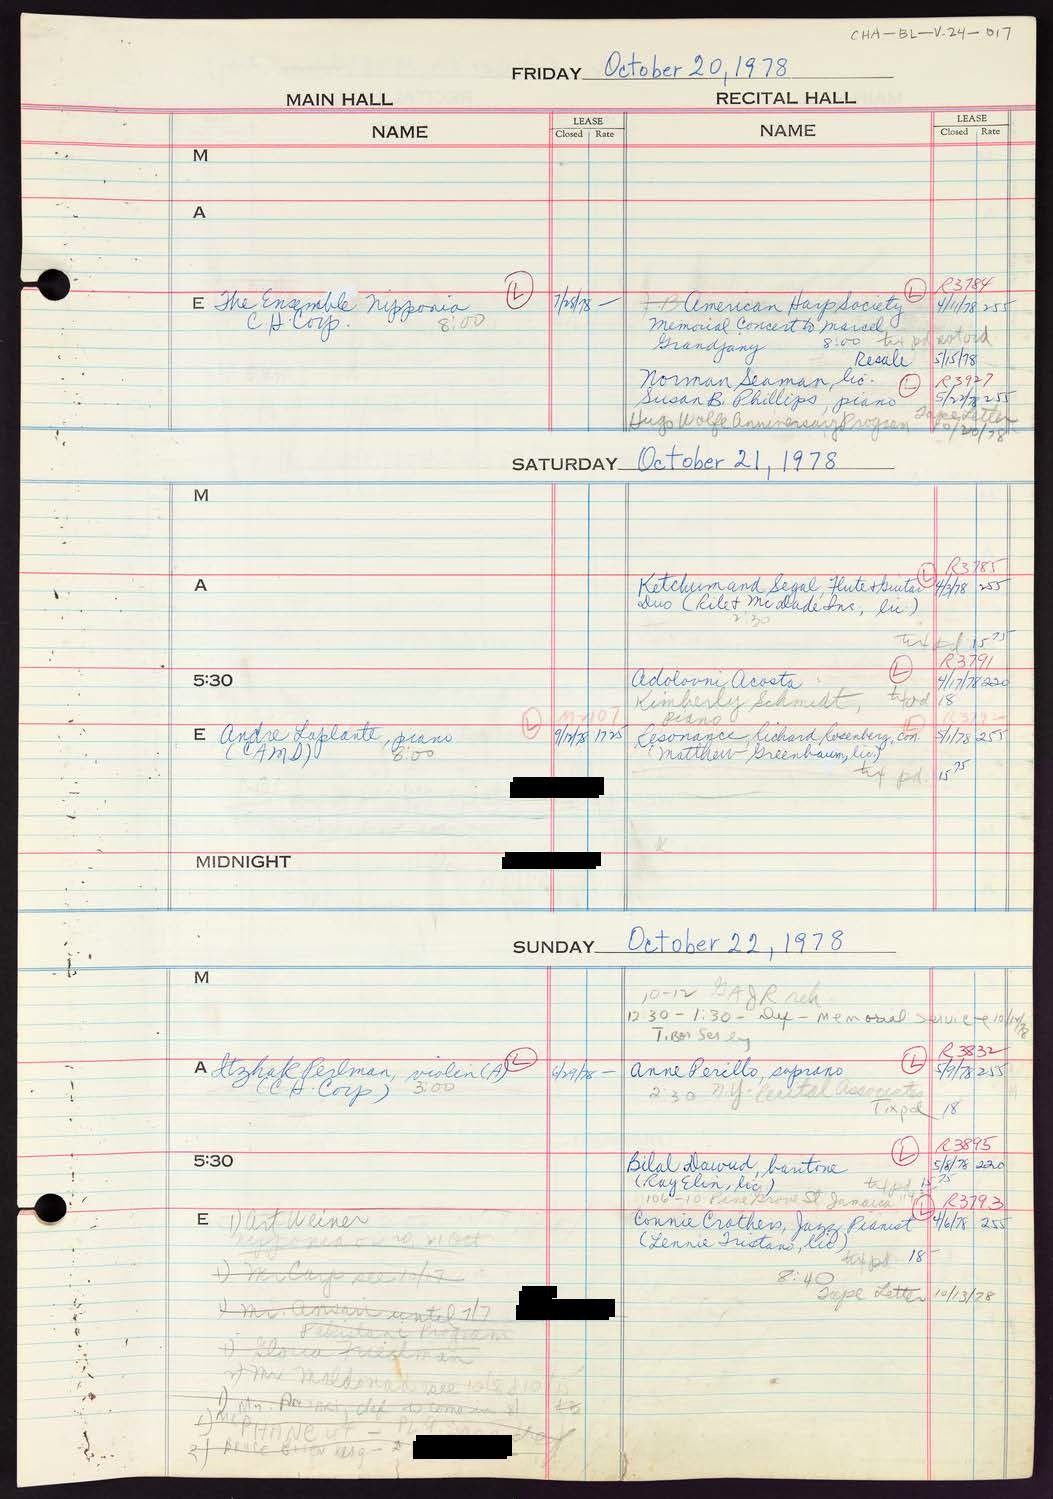 CHA-BL-V.24-017
FRIDAY October 20, 1978
MAIN HALL
RECITAL HALL
NAME LEASE Closed Rate
NAME LEASE Closed Rate
M
A
E The Ensemble Nipponia L 7/28/78 —
C.H. Corp. 8:00
R3784
American Harp Society L 4/11/78 255
Memorial Concert to Marcel
Grandjany 8:00 tix pd
Resale 5/15/78
Norman Seaman, lic. L R3927
Susan B. Phillips, piano 5/22/78 255
Hugo Wolfe Anniversary Program Tape Letter
10/20/78
SATURDAY October 21, 1978
M
A
R3785
Ketchum and Segal, Flute & Guitar L 4/3/78 255
Duo (Riley McDade Inc, lic)
2:30
tix pd 15 75
5:30
L R3791
Adolovni Acosta 4/17/78 220
Kimberly Schmidt, tix pd 18
piano
E Andre Laplante, piano L 9/12/78 1725
(CAMI) 8:00
Resonance, Richard Rosenberg, con. 5/1/78 255
(Matthew Greenbaum, lic.)
tix pd. 15 75
MIDNIGHT
SUNDAY October 22, 1978
M
10-12 reh
12 30 - 1:30 - Def - Memorial Service
Tibor Serly
A Itzhak Perlman, violin (A) L 6/29/78 —
(C.H. Corp) 3:00
L R3832
Anne Perillo, soprano 5/9/78 255
2:30 N.Y. Recital Associates
Tix pd 18
5:30
L R3895
Bilal Dawud, baritone 5/8/78 220
(Ray Elin, lic) tix pd 15 75
106-10 Pinegrove St Jamaica
L R3793
Connie Crothers, Jazz Pianist 4/6/78 255
(Lennie Tristano, lic)
tix pd. 18
8:40
Tape Letter 10/13/78
E 1) Art Weiner
1) Mr Carp see 10/7
1) Mr. Ansari until 7/7
Pakistani Program
1) Gloria Friedman
2) Mr Maldonado see 10/8